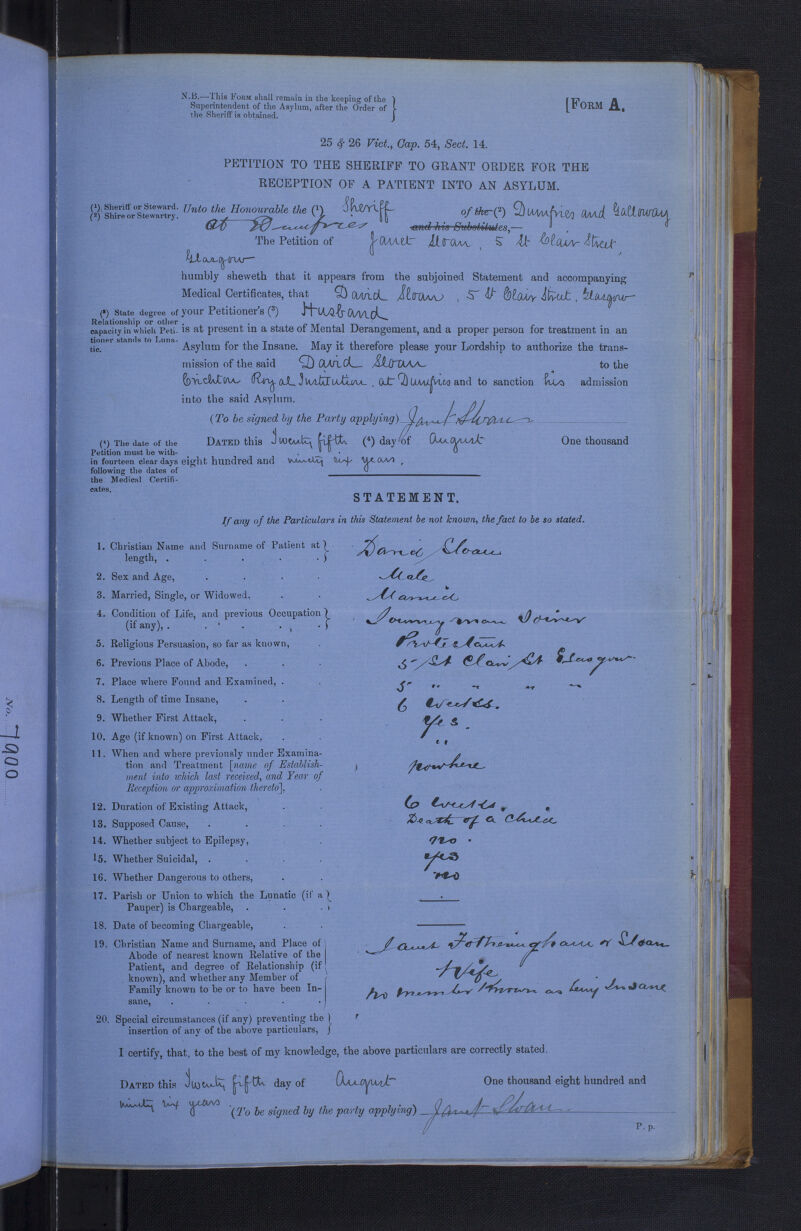 N.B.—This Form shall remain in the keeping of the
Superintendent of the Asylum, after the Order of
the Sheriff is obtained.
[Form A.
25 & 26 Vict., Cap. 54, Sect. 14.
PETITION TO THE SHERIFF TO GRANT ORDER FOR THE
RECEPTION OF A PATIENT INTO AN ASYLUM.
(¹) Sheriff or Steward.
(²) Shire or Stewartry.
Unto the Honourable the (¹) Sheriff of the (²) Dumfries and Galloway
at Dumfries and his Substitutes,—
The Petition of Janet Sloan, 5 St Clair Street,
Glasgow
humbly sheweth that it appears from the subjoined Statement and accompanying
Medical Certificates, that David Sloan, 5 St Clair Street, Glasgow
(³) State degree of
Relationship or other
capacity in which Peti-
tioner stands to Luna-
tic.
your Petitioner's (³) Husband
is at present in a state of Mental Derangement, and a proper person for treatment in an
Asylum for the Insane. May it therefore please your Lordship to authorize the trans-
mission of the said David Sloan to the
Crichton Royal Institution, at Dumfries and to sanction his admission
into the said Asylum.
(To be signed by the Party applying) Janet Sloan
(⁴) The date of the
Petition must be with-
in fourteen clear days
following the dates of
the Medical Certifi-
cates.
Dated this Twenty fifth (⁴) day of August One thousand
eight hundred and ninety six years.
STATEMENT.
If any of the Particulars in this Statement be not known, the fact to be so stated.
1. Christian Name and Surname of Patient at
length, . David Sloan
2. Sex and Age, Male
3. Married, Single, or Widowed. Married
4. Condition of Life, and previous Occupation
(if any), . Journeyman Joiner
5. Religious Persuasion, so far as known, Protestant
6. Previous Place of Abode, 5 St Clair St Glasgow
7. Place where Found and Examined, . 5 " " " "
8. Length of time Insane, 6 weeks.
9. Whether First Attack, Yes.
10. Age (if known) on First Attack, "
11. When and where previously under Examina-
tion and Treatment [name of Establish-
ment into which last received, and Year of
Reception or approximation thereto]. nowhere
12. Duration of Existing Attack, 6 weeks.
13. Supposed Cause, Death of a Child
14. Whether subject to Epilepsy, no.
15. Whether Suicidal, . yes
16. Whether Dangerous to others, no
17. Parish or Union to which the Lunatic (if a
Pauper) is Chargeable, . —
18. Date of becoming Chargeable, —
19. Christian Name and Surname, and Place of
Abode of nearest known Relative of the
Patient, and degree of Relationship (if
known), and whether any Member of
Family known to be or to have been In-
sane, .
Janet Fotheringham or Sloan
Wife
No member known as being Insane
20. Special circumstances (if any) preventing the
insertion of any of the above particulars,
I certify, that, to the best of my knowledge, the above particulars are correctly stated.
Dated this Twenty fifth day of August One thousand eight hundred and
ninety six years. (To be signed by the party applying) Janet Sloan
P. p.
No. 7900